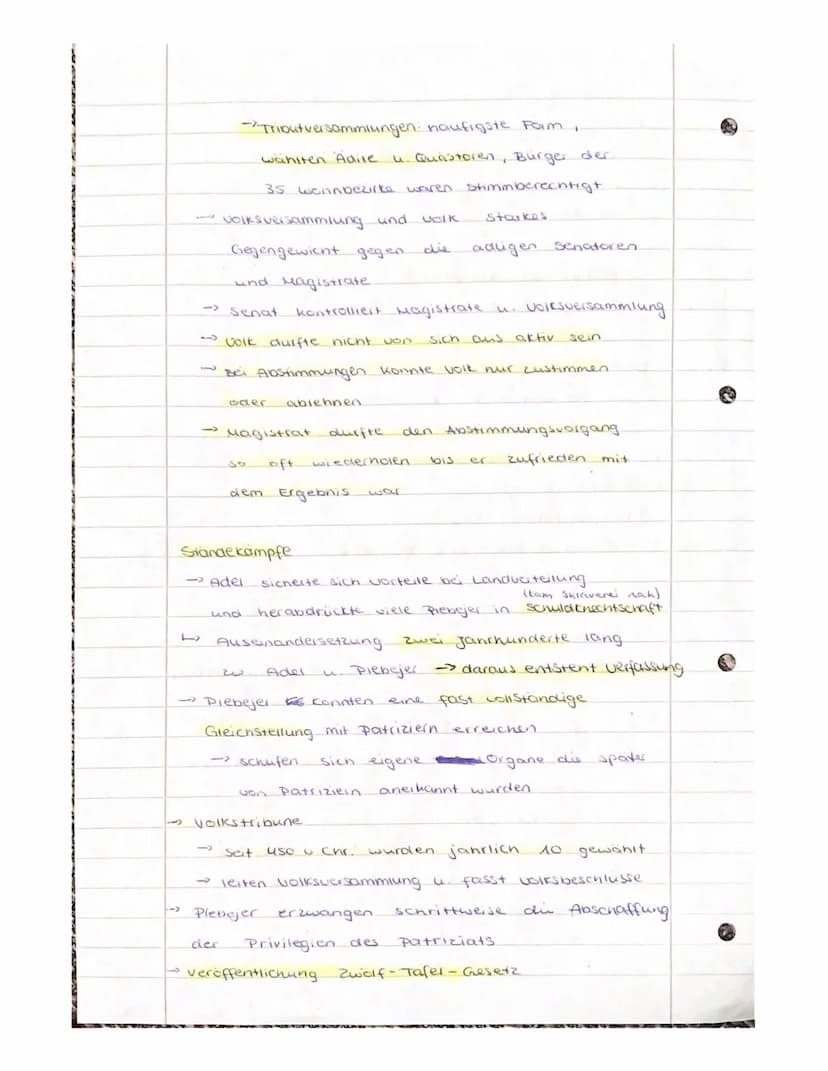 → Tributversammlungen: häufigste Form,
wählten Ädile u. Quästoren, Bürger der
35 Wohnbezirke waren stimmberechtigt
→ Volksversammlung und Volk starkes
Gegengewicht gegen die adligen Senatoren
und Magistrate
→ Senat kontrolliert Magistrate u. Volksversammlung
→ Volk durfte nicht von sich aus aktiv sein
→ Bei Abstimmungen konnte Volk nur zustimmen
oder ablehnen
→ Magistrat durfte den Abstimmungsvorgang
so oft wiederholen bis er zufrieden mit
dem Ergebnis war
Ständekämpfe
→ Adel sicherte sich Vorteile bei Landverteilung
(kam Sklaverei nah)
und herabdrückte viele Plebejer in Schuldknechtschaft
↳ Auseinandersetzung zwei Jahrhunderte lang
zw Adel u. Plebejer → daraus entsteht Verfassung
→ Plebejer konnten eine fast vollständige
Gleichstellung mit Patriziern erreichen
→ schufen sich eigene Organe die später
von Patriziern anerkannt wurden
→ Volkstribune
→ seit 450 v Chr. wurden jährlich 10 gewählt
→ leiten Volksversammlung u. fasst Volksbeschlüsse
→ Plebejer erzwangen schrittweise die Abschaffung
der Privilegien des Patriziats
→ Veröffentlichung Zwölf-Tafel-Gesetz